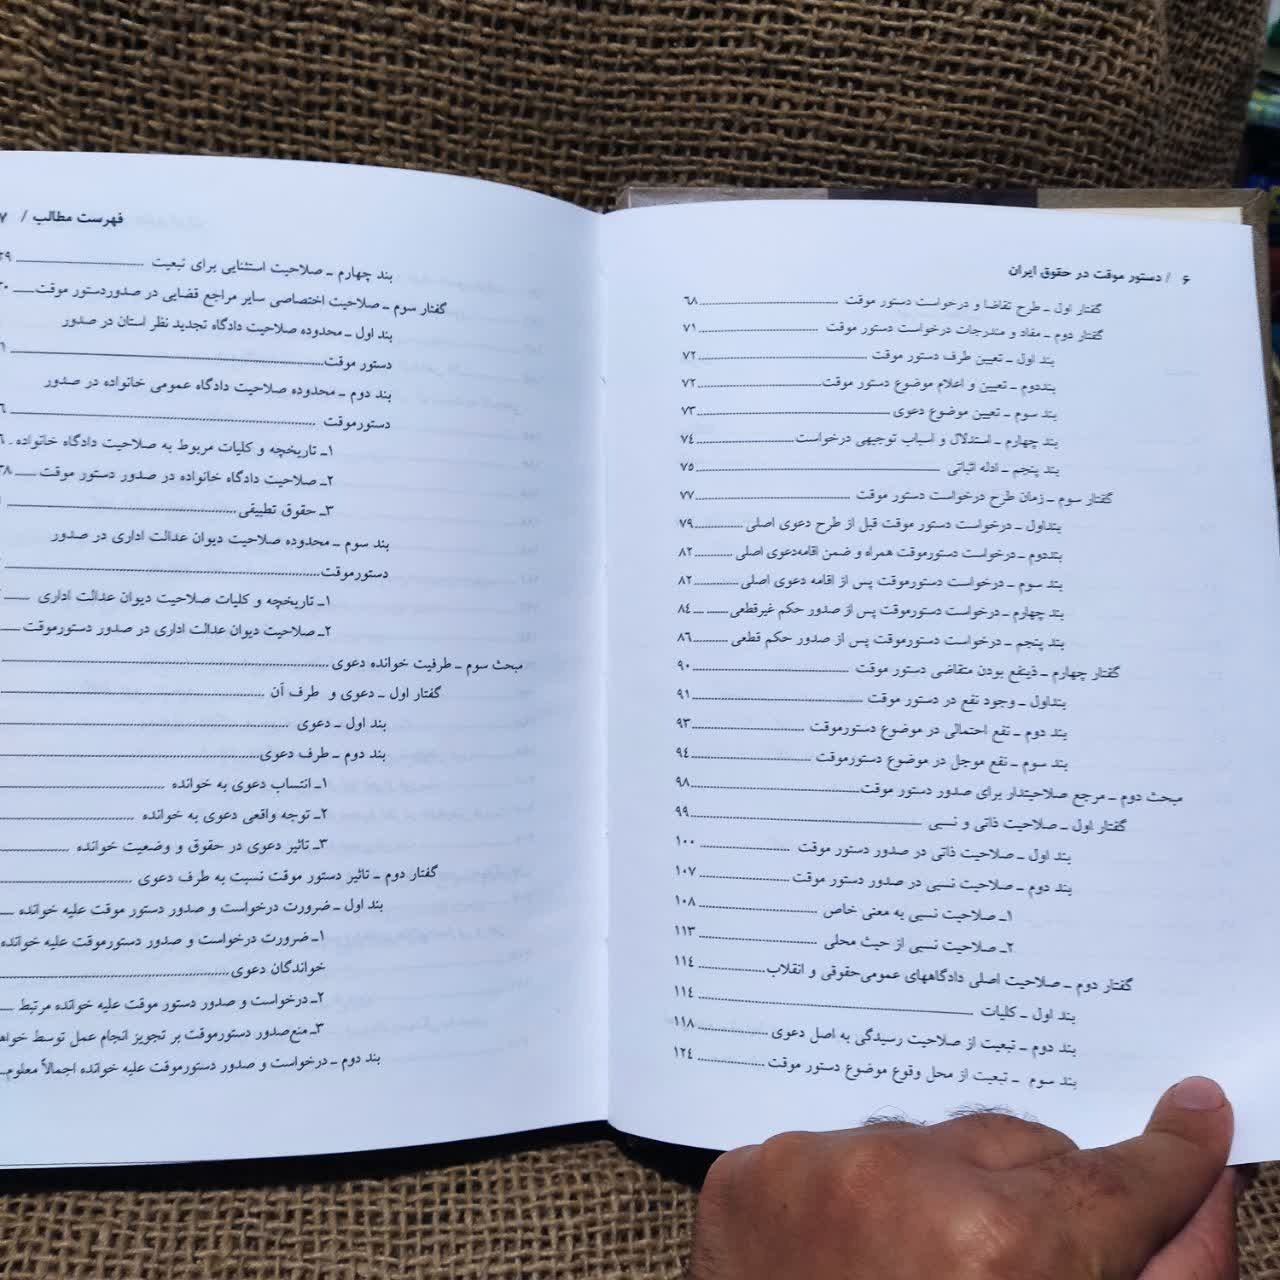 ۶ / دستور موقت در حقوق ایران
گفتار اول ـ طرح تقاضا و درخواست دستور موقت ۶۸
گفتار دوم ـ مفاد و مندرجات درخواست دستور موقت ۷۱
بند اول ـ تعیین طرف دستور موقت ۷۲
بنددوم ـ تعیین و اعلام موضوع دستور موقت ۷۲
بند سوم ـ تعیین موضوع دعوی ۷۳
بند چهارم ـ استدلال و اسباب توجیهی درخواست ۷۴
بند پنجم ـ ادله اثباتی ۷۵
گفتار سوم ـ زمان طرح درخواست دستور موقت ۷۷
بنداول ـ درخواست دستور موقت قبل از طرح دعوی اصلی ۷۹
بنددوم ـ درخواست دستورموقت همراه و ضمن اقامه‌دعوی اصلی ۸۲
بند سوم ـ درخواست دستورموقت پس از اقامه دعوی اصلی ۸۲
بند چهارم ـ درخواست دستورموقت پس از صدور حکم غیرقطعی ۸۴
بند پنجم ـ درخواست دستورموقت پس از صدور حکم قطعی ۸۶
گفتار چهارم ـ ذینفع بودن متقاضی دستور موقت ۹۰
بنداول ـ وجود نفع در دستور موقت ۹۱
بند دوم ـ نفع احتمالی در موضوع دستورموقت ۹۳
بند سوم ـ نفع موجل در موضوع دستورموقت ۹۴
مبحث دوم ـ مرجع صلاحیتدار برای صدور دستور موقت ۹۸
گفتار اول ـ صلاحیت ذاتی و نسبی ۹۹
بند اول ـ صلاحیت ذاتی در صدور دستور موقت ۱۰۰
بند دوم ـ صلاحیت نسبی در صدور دستور موقت ۱۰۷
۱ـ صلاحیت نسبی به معنی خاص ۱۰۸
۲ـ صلاحیت نسبی از حیث محلی ۱۱۳
گفتار دوم ـ صلاحیت اصلی دادگاههای عمومی‌حقوقی و انقلاب ۱۱۴
بند اول ـ کلیات ۱۱۴
بند دوم ـ تبعیت از صلاحیت رسیدگی به اصل دعوی ۱۱۸
بند سوم ـ تبعیت از محل وقوع موضوع دستور موقت ۱۲۴
فهرست مطالب / ۷
بند چهارم ـ صلاحیت استثنایی برای تبعیت
گفتار سوم ـ صلاحیت اختصاصی سایر مراجع قضایی در صدوردستور موقت
بند اول ـ محدوده صلاحیت دادگاه تجدید نظر استان در صدور
دستور موقت
بند دوم ـ محدوده صلاحیت دادگاه عمومی خانواده در صدور
دستورموقت
۱ـ تاریخچه و کلیات مربوط به صلاحیت دادگاه خانواده
۲ـ صلاحیت دادگاه خانواده در صدور دستور موقت
۳ـ حقوق تطبیقی
بند سوم ـ محدوده صلاحیت دیوان عدالت اداری در صدور
دستورموقت
۱ـ تاریخچه و کلیات صلاحیت دیوان عدالت اداری
۲ـ صلاحیت دیوان عدالت اداری در صدور دستورموقت
مبحث سوم ـ ظرفیت خوانده دعوی
گفتار اول ـ دعوی و طرف آن
بند اول ـ دعوی
بند دوم ـ طرف دعوی
۱ـ انتساب دعوی به خوانده
۲ـ توجه واقعی دعوی به خوانده
۳ـ تاثیر دعوی در حقوق و وضعیت خوانده
گفتار دوم ـ تاثیر دستور موقت نسبت به طرف دعوی
بند اول ـ ضرورت درخواست و صدور دستور موقت علیه خوانده
۱ـ ضرورت درخواست و صدور دستورموقت علیه خوانده
خواندگان دعوی
۲ـ درخواست و صدور دستور موقت علیه خوانده مرتبط
۳ـ منع‌صدور دستورموقت بر تجویز انجام عمل توسط
بند دوم ـ درخواست و صدور دستورموقت علیه خوانده اجمالاً معلوم